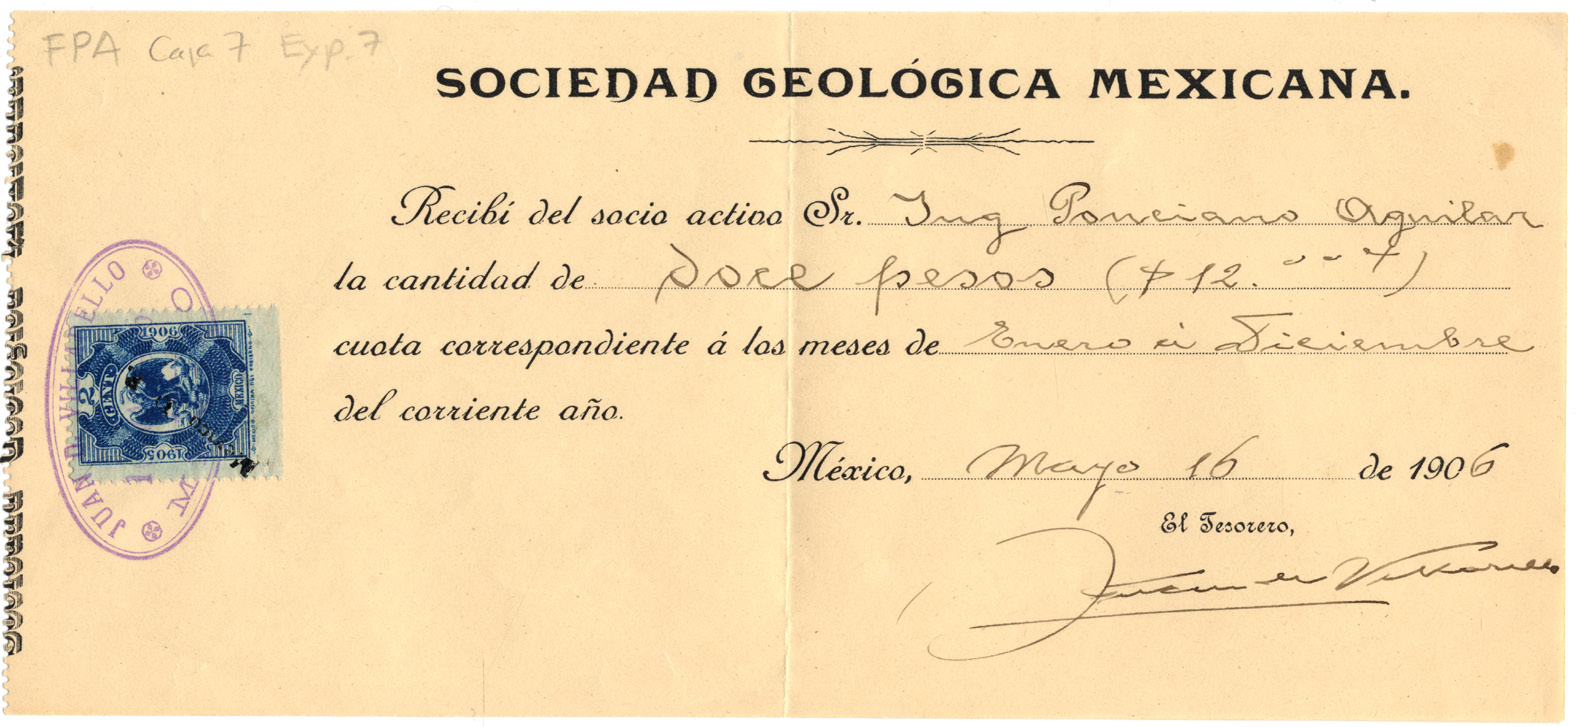 FPA Caja 7 Exp. 7
SOCIEDAD GEOLÓGICA MEXICANA.
Recibí del socio activo Sr. Ing Ponciano Aguilar
la cantidad de doce pesos ($ 12.
cuota correspondiente á los meses de Enero á Diciembre
del corriente año.
México, Mayo 16 de 1906
El Tesorero,
JUAN D. VILLARELLO
1906
2 CENT.
MEXICO
1905